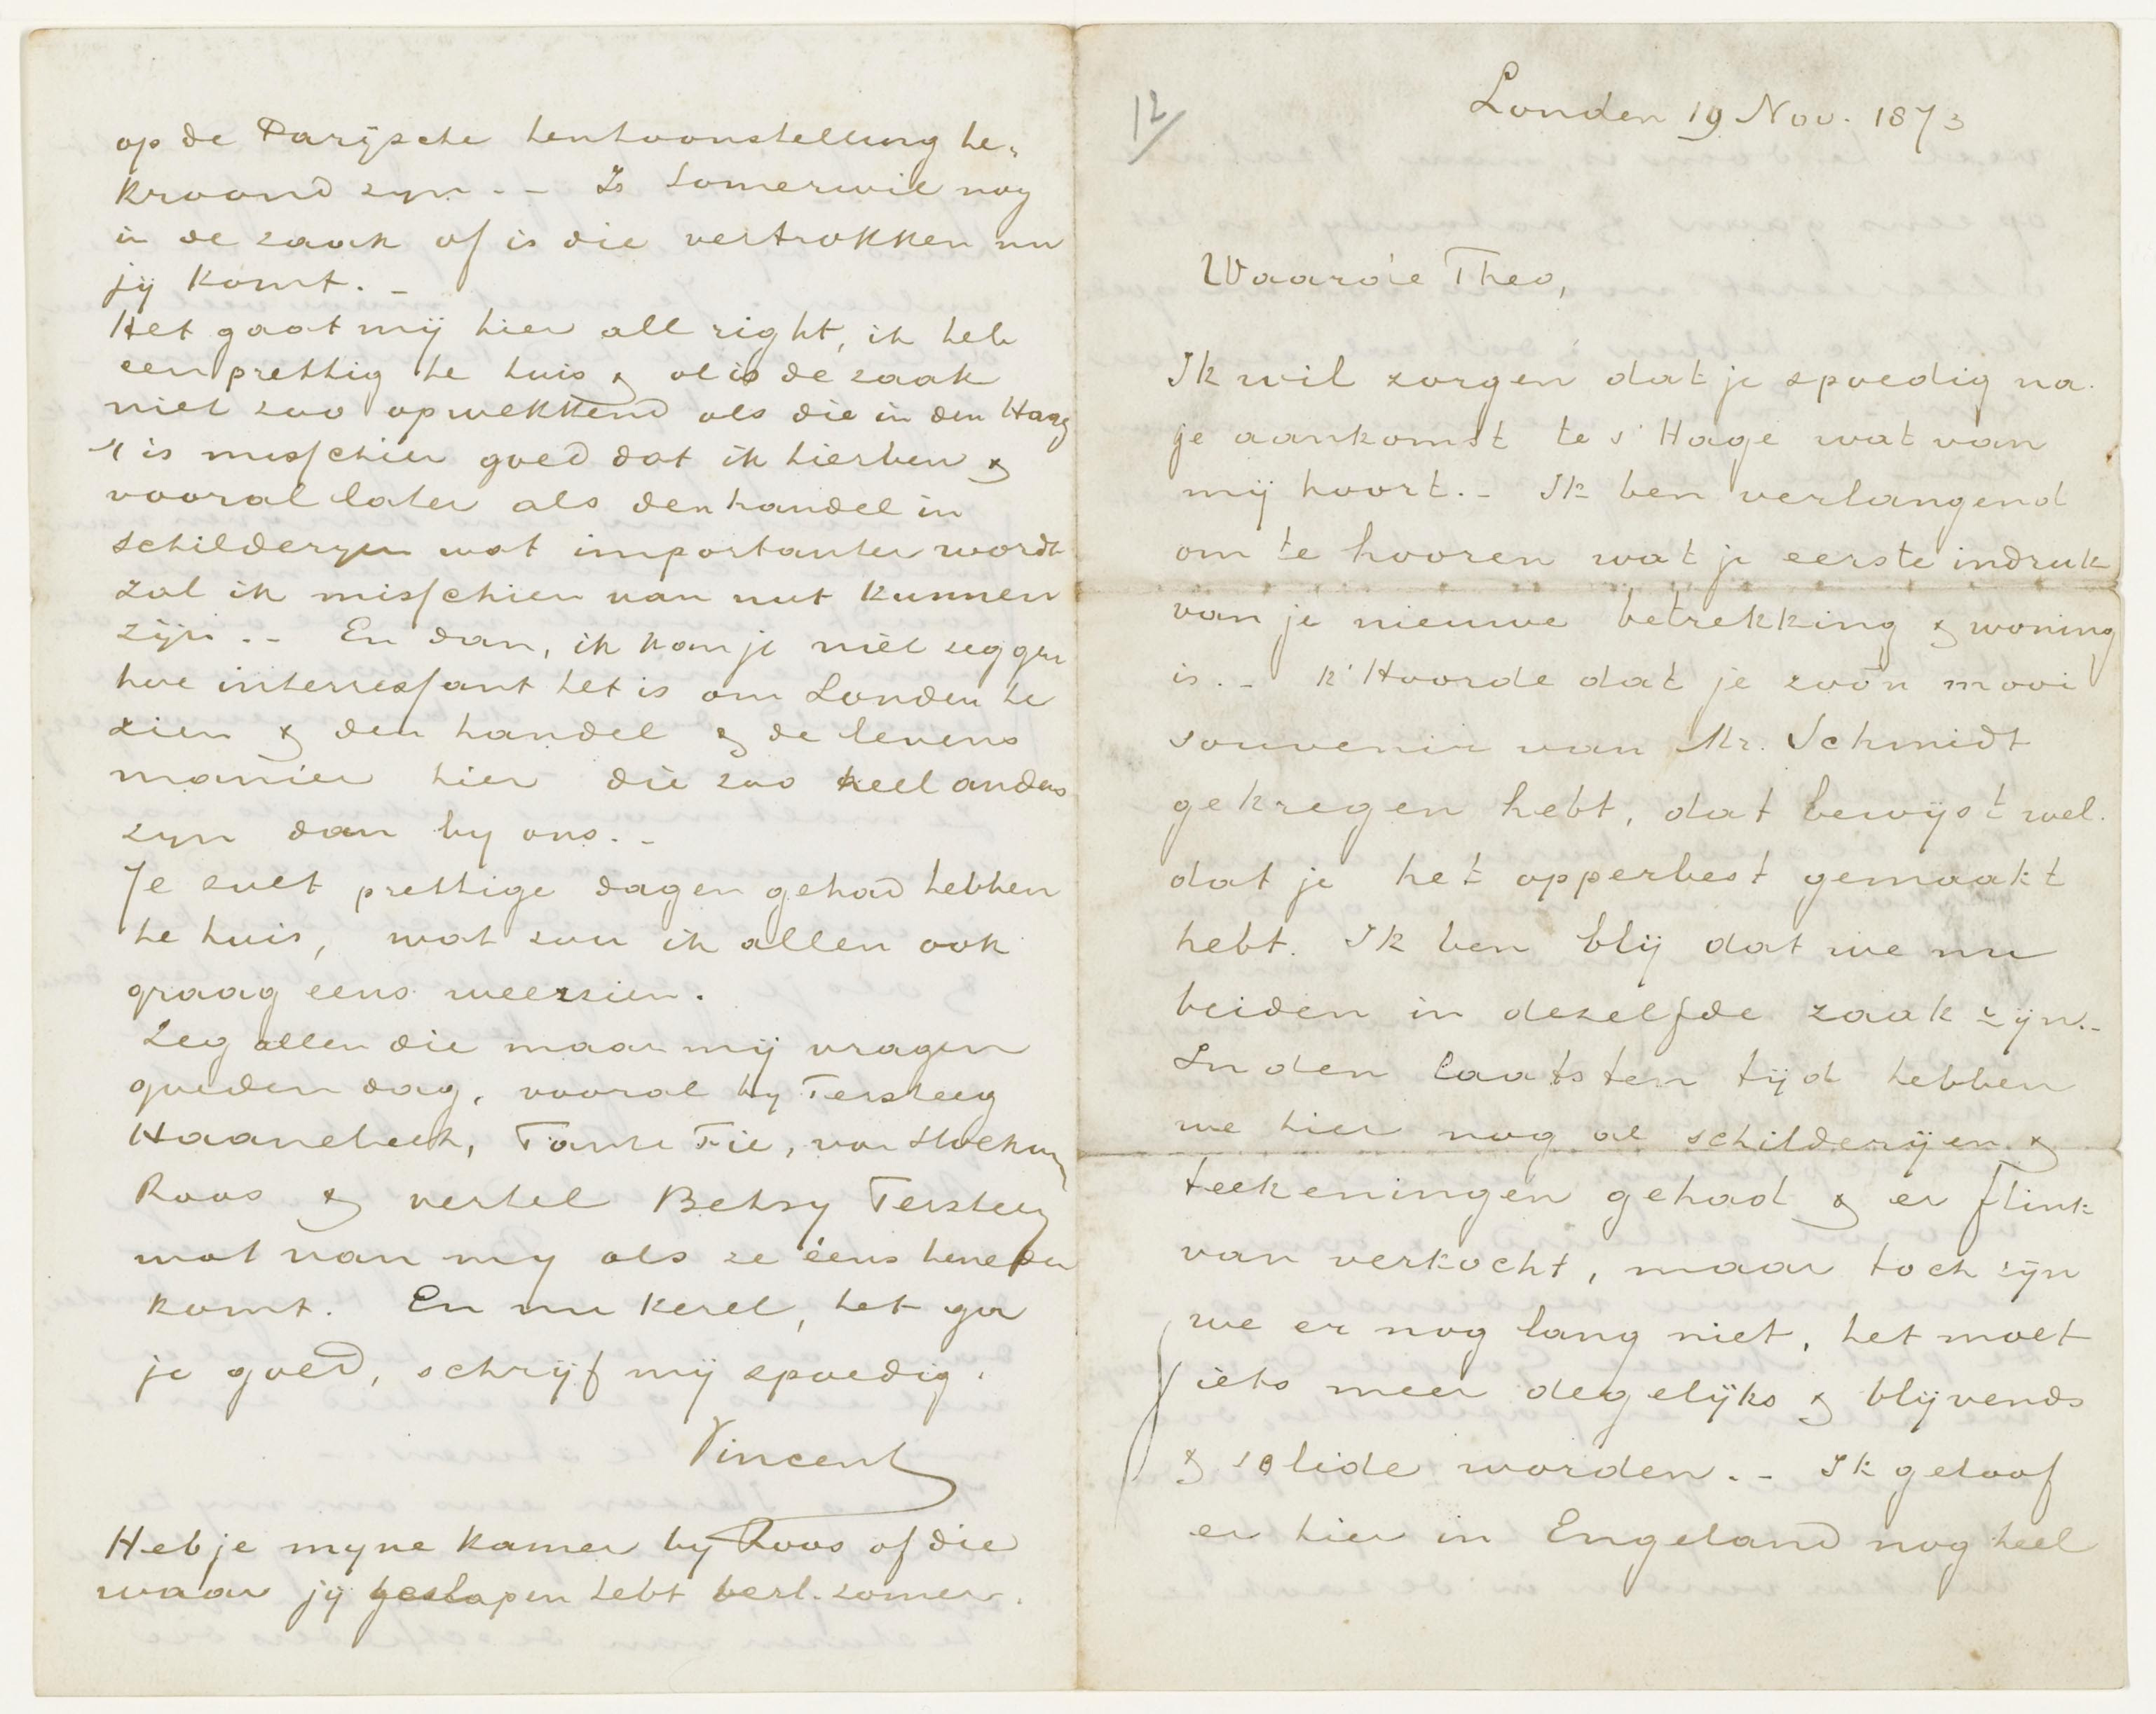 12
Londen 19 Nov. 1873
Waarde Theo,
Ik wil zorgen dat je spoedig na
je aankomst te s' Hage wat van
mij hoort. - Ik ben verlangend
om te hooren wat je eerste indruk
van je nieuwe betrekking & woning
is. - k' Hoorde dat je zoo'n mooi
souvenir van Mr. Schmidt
gekregen hebt, dat bewijst wel
dat je het opperbest gemaakt
hebt. Ik ben blij dat we nu
beiden in dezelfde zaak zijn. -
In den laatsten tijd hebben
we hier nog al schilderijen &
teekeningen gehad & er flink
van verkocht, maar toch zijn
we er nog lang niet, het moet
iets meer degelijks & blijvends
& solide worden. - Ik geloof
er hier in Engeland nog heel
op de Parijsche tentoonstelling be„
kroond zyn. - Is Somerwil nog
in de zaak of is die vertrokken nu
jij komt. -
Het gaat mij hier all right, ik heb
een prettig te huis & al is de zaak
niet zoo opwekkend als die in den Haag
't is misschien goed dat ik hier ben &
vooral later als den handel in
schilderyen wat importanter wordt
zal ik misschien van nut kunnen
zijn. - En dan, ik kan je niet zeggen
hoe interressant het is om Londen te
zien & den handel & de levens
manier hier die zoo heel anders
zyn dan by ons. -
Je zult prettige dagen gehad hebben
te huis, wat zou ik allen ook
graag eens weerzien.
Zeg allen die maar mij vragen
goeden dag, vooral by Tersteeg
Haanebeek, Tante Fie, van Stockum
Roos & vertel Betsy Tersteeg
wat van my als ze éens beneden
komt. En nu kerel, het ga
je goed, schrijf mij spoedig.
Vincent
Heb je myne kamer by Roos of die
waar jij geslapen hebt verl. zomer.